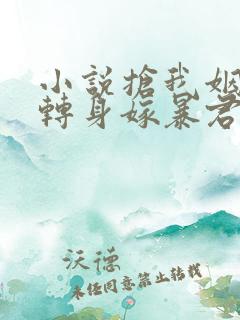 小説搶我姻
轉身嫁暴君
沃德
未经同意禁止转载